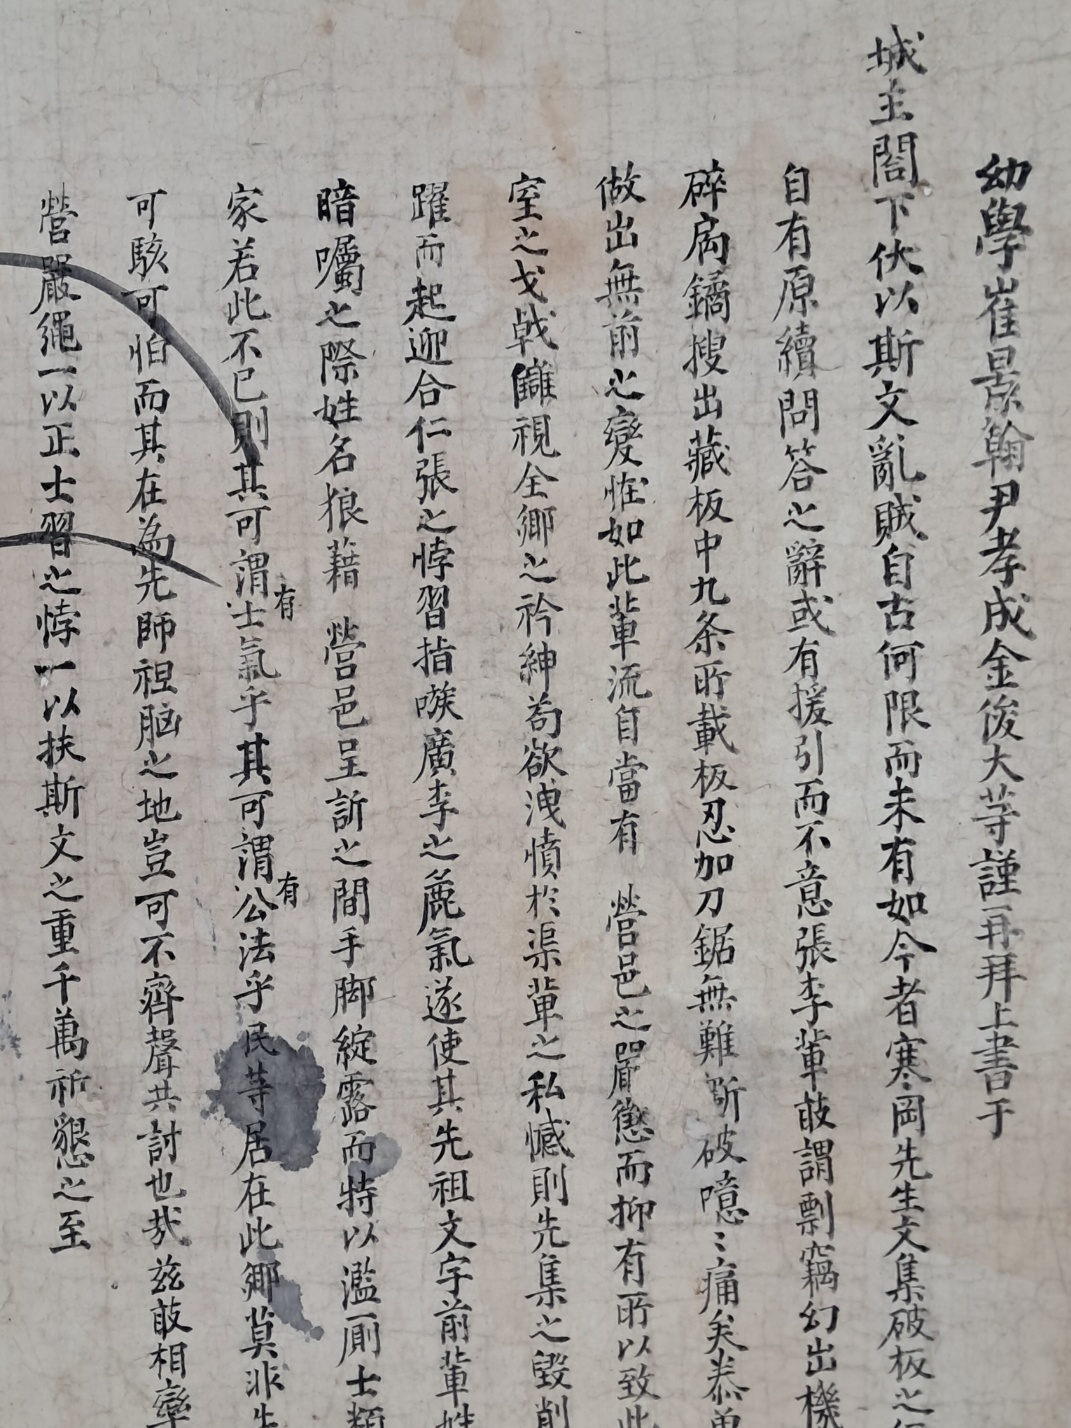 幼學崔景翰尹孝成金俊大等謹再拜上書于
城主閤下伏以斯文亂賊自古何限而未有如今者寒岡先生文集破板之
自有原續問答之辭或有援引而不意張李輩敢謂剽竊幻出機
碎扃鐍搜出藏板中九条所載板忍加刀鋸無難斫破噫〻痛矣
做出無前之變恠如此輩流自當有 營邑之嚴懲而抑有所以致此
室之戈戟讎視全鄉之衿紳苟欲洩憤於渠輩之私憾則先集之毀削
躍而起迎合仁張之悖習指嗾廣李之麁氣遂使其先祖文字前輩姓
暗囑之際姓名狼藉 營邑呈訴之間手脚綻露而特以濫厠士類
家若此不已則其可謂有士氣乎其可謂有公法乎民等居在此鄉莫非先
可駭可怕而其在為先師袒脳之地豈可不齊聲共討也㢤兹敢相率
營嚴繩一以正士習之悖一以扶斯文之重千萬祈懇之至